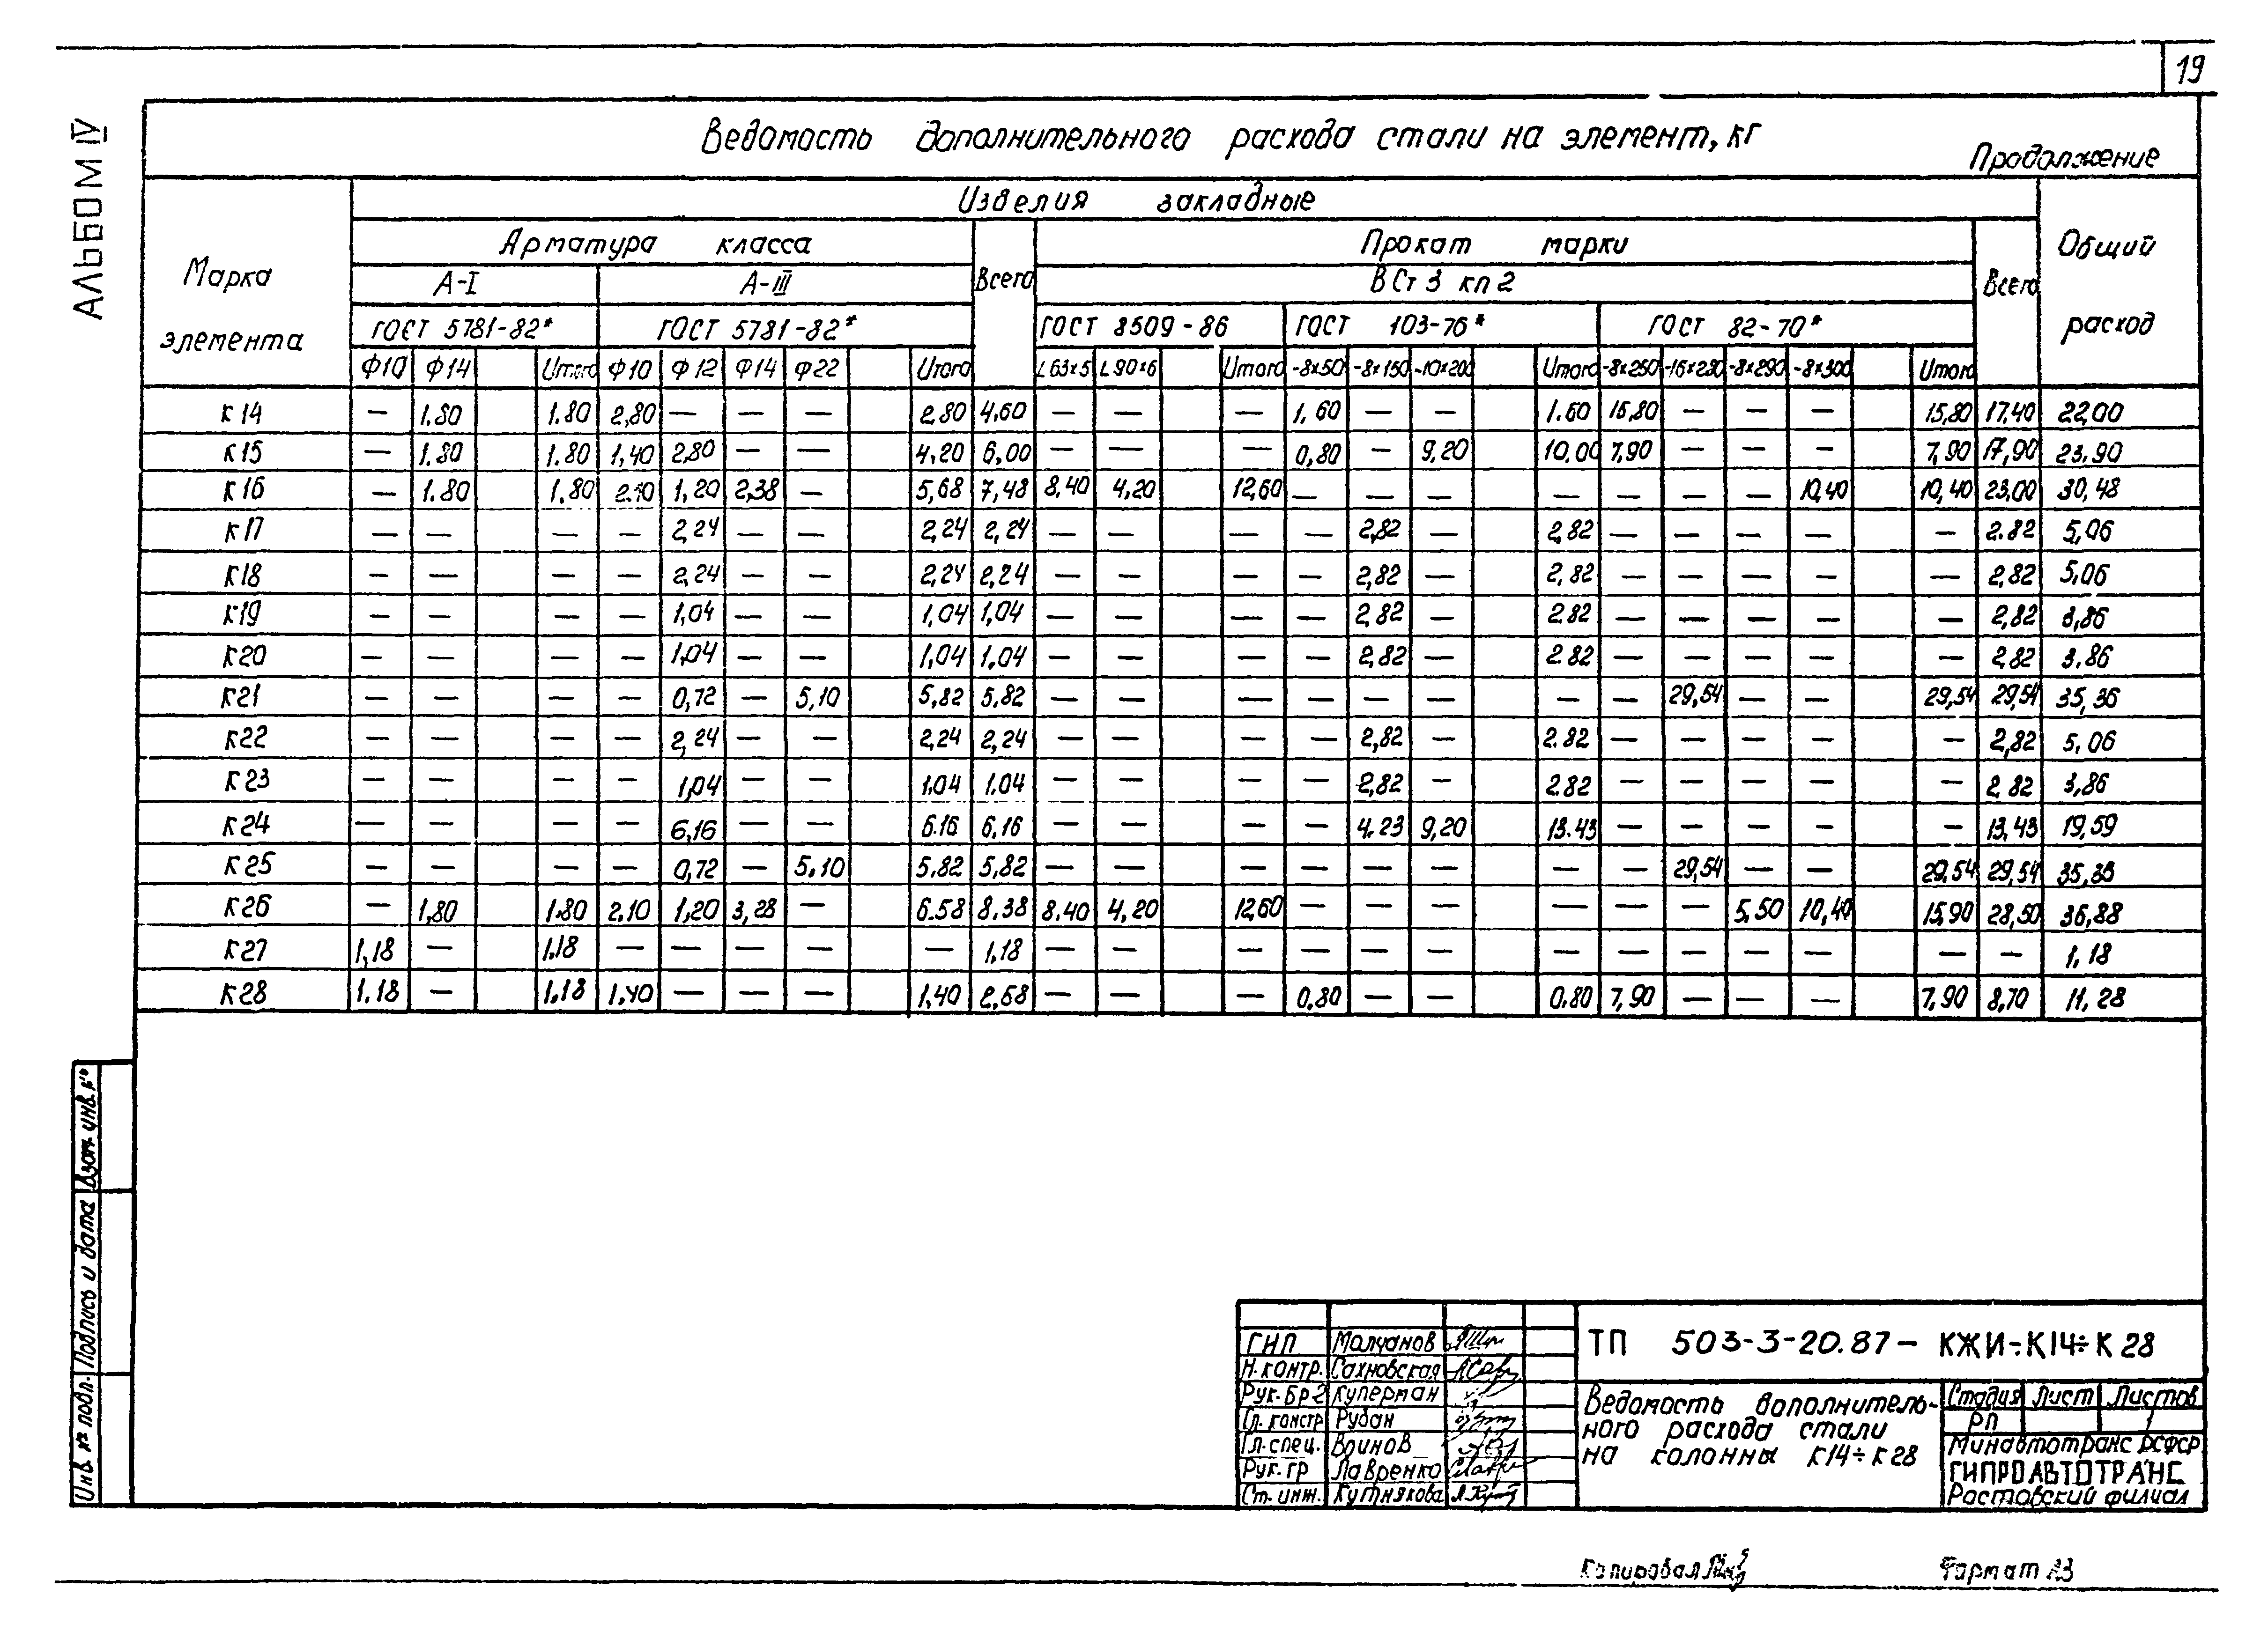 19
АЛЬБОМ IV
Ведомость дополнительного расхода стали на элемент, кг
Продолжение
Марка элемента
Изделия закладные
Общий расход
Арматура класса
Всего
Прокат марки
Всего
А-I А-III
ВСт3 кп2
ГОСТ 5781-82* ГОСТ 5781-82* ГОСТ 8509-86 ГОСТ 103-76* ГОСТ 82-70*
Ф10 Ф14 Итого Ф10 Ф12 Ф14 Ф22 Итого L63×5 L90×6 Итого -8×50 -8×150 -10×200 Итого -8×250 -16×230 -8×290 -8×300 Итого
К14 — 1.80 1.80 2,80 — — — 2.80 4,60 — — — 1,60 — — 1.60 15,80 — — — 15,80 17,40 22,00
К15 — 1.80 1.80 1,40 2,80 — — 4,20 6,00 — — — 0,80 — 9,20 10,00 7,90 — — — 7,90 17,90 23,90
К16 — 1.80 1.80 2.10 1,20 2,38 — 5,68 7,48 8,40 4,20 12,60 — — — — — — — 10,40 10,40 23,00 30,48
К17 — — — — 2,24 — — 2,24 2,24 — — — — 2,82 — 2,82 — — — — — 2.82 5,06
К18 — — — — 2,24 — — 2,24 2,24 — — — — 2,82 — 2,82 — — — — — 2,82 5,06
К19 — — — — 1,04 — — 1,04 1,04 — — — — 2,82 — 2.82 — — — — — 2,82 3,86
К20 — — — — 1,04 — — 1,04 1.04 — — — — 2,82 — 2.82 — — — — — 2,82 3.86
К21 — — — — 0,72 — 5,10 5,82 5,82 — — — — — — — — 29,54 — — 29,54 29,54 35,36
К22 — — — — 2,24 — — 2,24 2,24 — — — — 2,82 — 2.82 — — — — — 2,82 5,06
К23 — — — — 1,04 — — 1,04 1.04 — — — — 2,82 — 2.82 — — — — — 2,82 3,86
К24 — — — — 6,16 — — 6.16 6,16 — — — — 4.23 9,20 13.43 — — — — — 13,43 19,59
К25 — — — — 0,72 — 5.10 5,82 5,82 — — — — — — — — 29,54 — — 29,54 29,54 35,36
К26 — 1,80 1.80 2.10 1,20 3,28 — 6.58 8.38 8.40 4,20 12,60 — — — — — — 5,50 10,40 15,90 28,50 36,88
К27 1,18 — 1.18 — — — — — 1.18 — — — — — — — — — — — — — 1,18
К28 1.18 — 1.18 1,40 — — — 1,40 2.58 — — — 0.80 — — 0.80 7,90 — — — 7,90 8,70 11,28
Инв. № подл. Подпись и дата Взам. инв. №
ГНП Молчанов
Н.контр. Сахновская
Рук.бр2 Куперман
Гл.констр Рудан
Гл.спец. Воинов
Рук.гр Лавренко
Ст.инж. Кутнякова
ТП 503-3-20.87- КЖИ÷К14÷К28
Ведомость дополнитель-
ного расхода стали
на колонны К14÷К28
Стадия Лист Листов
РП 1
Минавтотранс РСФСР
ГИПРОАВТОТРАНС
Ростовский филиал
Копировал
Формат А3